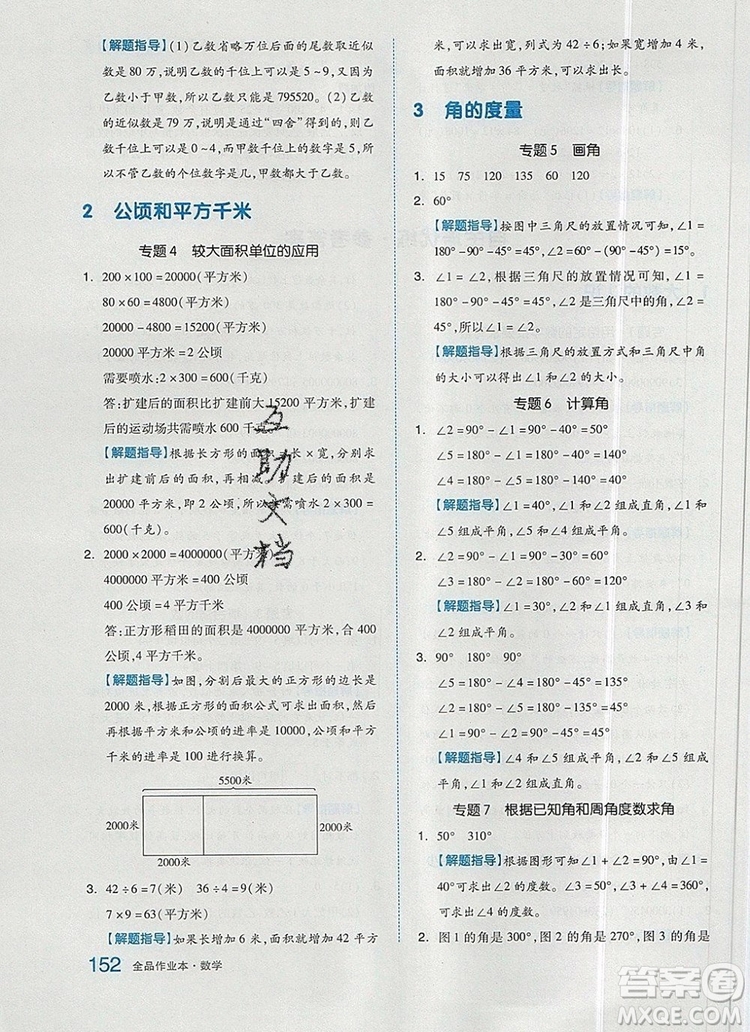 【解题指导】(1)乙数省略万位后面的尾数取近似
数是 80 万，说明乙数的千位上可以是 5~9，又因为
乙数小于甲数，所以乙数是 795520。(2)乙数
的近似数是 79 万，是由“四舍”得到的，则乙
数的千位上可以是 0~4，而千位上的数字是 5，所
以不管乙数的个位数字是几，都不符合题意。
2 公顷和平方千米
专题 4 较大面积单位的应用
1. 200×100=20000(平方米)
80×60=4800(平方米)
20000-4800=15200(平方米)
20000平方米=2 公顷
需要喷水：2×300=600(千克)
答：扩建后的面积比扩建前大 15200 平方米，扩建
后的运动场共需喷水 600 千克。
【解题指导】根据长方形的面积=长×宽，分别求
出扩建前后的面积，再相减。扩建后的面积是
20000 平方米，即 2 公顷，所以需喷水 2×300=
600(千克)。
2. 2000×2000=4000000(平方米)
4000000平方米=400 公顷
400 公顷=4 平方千米
答：正方形稻田的面积是 4000000 平方米，合 400
公顷，4 平方千米。
【解题指导】如图，分割后最大的正方形的边长是
2000 米，根据正方形的面积公式可求出面积，根
据平方米和公顷的进率是 10000，公顷和平方
千米的进率是 100 进行换算。
5500米
2000米
2000米
2000米
3. 42÷6=7(米) 36÷4=9(米)
7×9=63(平方米)
【解题指导】如果长增加 6 米，面积就增加 42 平方
152 全品作业本·数学
米，可以求出宽，列式为 42÷6；如果宽增加 4 米，
面积就增加 36 平方米，可以求出长。
3 角的度量
专题 5 画角
1. 15 75 120 135 60 120
2. 60°
【解题指导】按图中三角尺的放置情况可知，∠1=
180°-90°-90°-45°+45°+60°=60°。
3. ∠1=∠2，根据三角尺的放置情况可知，∠1=
180°-90°-45°=45°，∠2是三角尺中的角，∠2=
45°，所以∠1=∠2。
【解题指导】根据三角尺的放置方式和三角尺中角
的大小可以求出∠1和∠2的大小。
专题 6 计算角
1. ∠2=90°-∠1=90°-40°=50°
∠5=180°-∠1=180°-40°=140°
【解题指导】∠1=40°，∠1和∠2组成直角，∠1和
∠5组成平角，∠2和∠3组成平角。
2. ∠2=90°-∠1=90°-30°=60°
∠5=180°-∠2=180°-60°=120°
【解题指导】∠1=30°，∠1和∠2组成直角，∠2和
∠5组成平角。
3. 90° 180° 90°
∠5=180°-∠4=180°-45°=135°
∠2=180°-∠5=180°-135°=45°
∠1=90°-∠2=90°-45°=45°
【解题指导】∠4和∠5组成平角，∠2和∠5组成平
角，∠1和∠2组成直角。
专题 7 根据已知角和周角度数求角
1. 50° 310°
【解题指导】根据图形可知∠1+∠2=90°，可以求
出∠2的度数。∠3=90°，∠3+∠2+∠4=360°，
可以求出∠4的度数。
2. 图 1 的角是 300°，图 2 的角是 135°，图 3 的角是
互助文档
答案圈
MXQE.COM